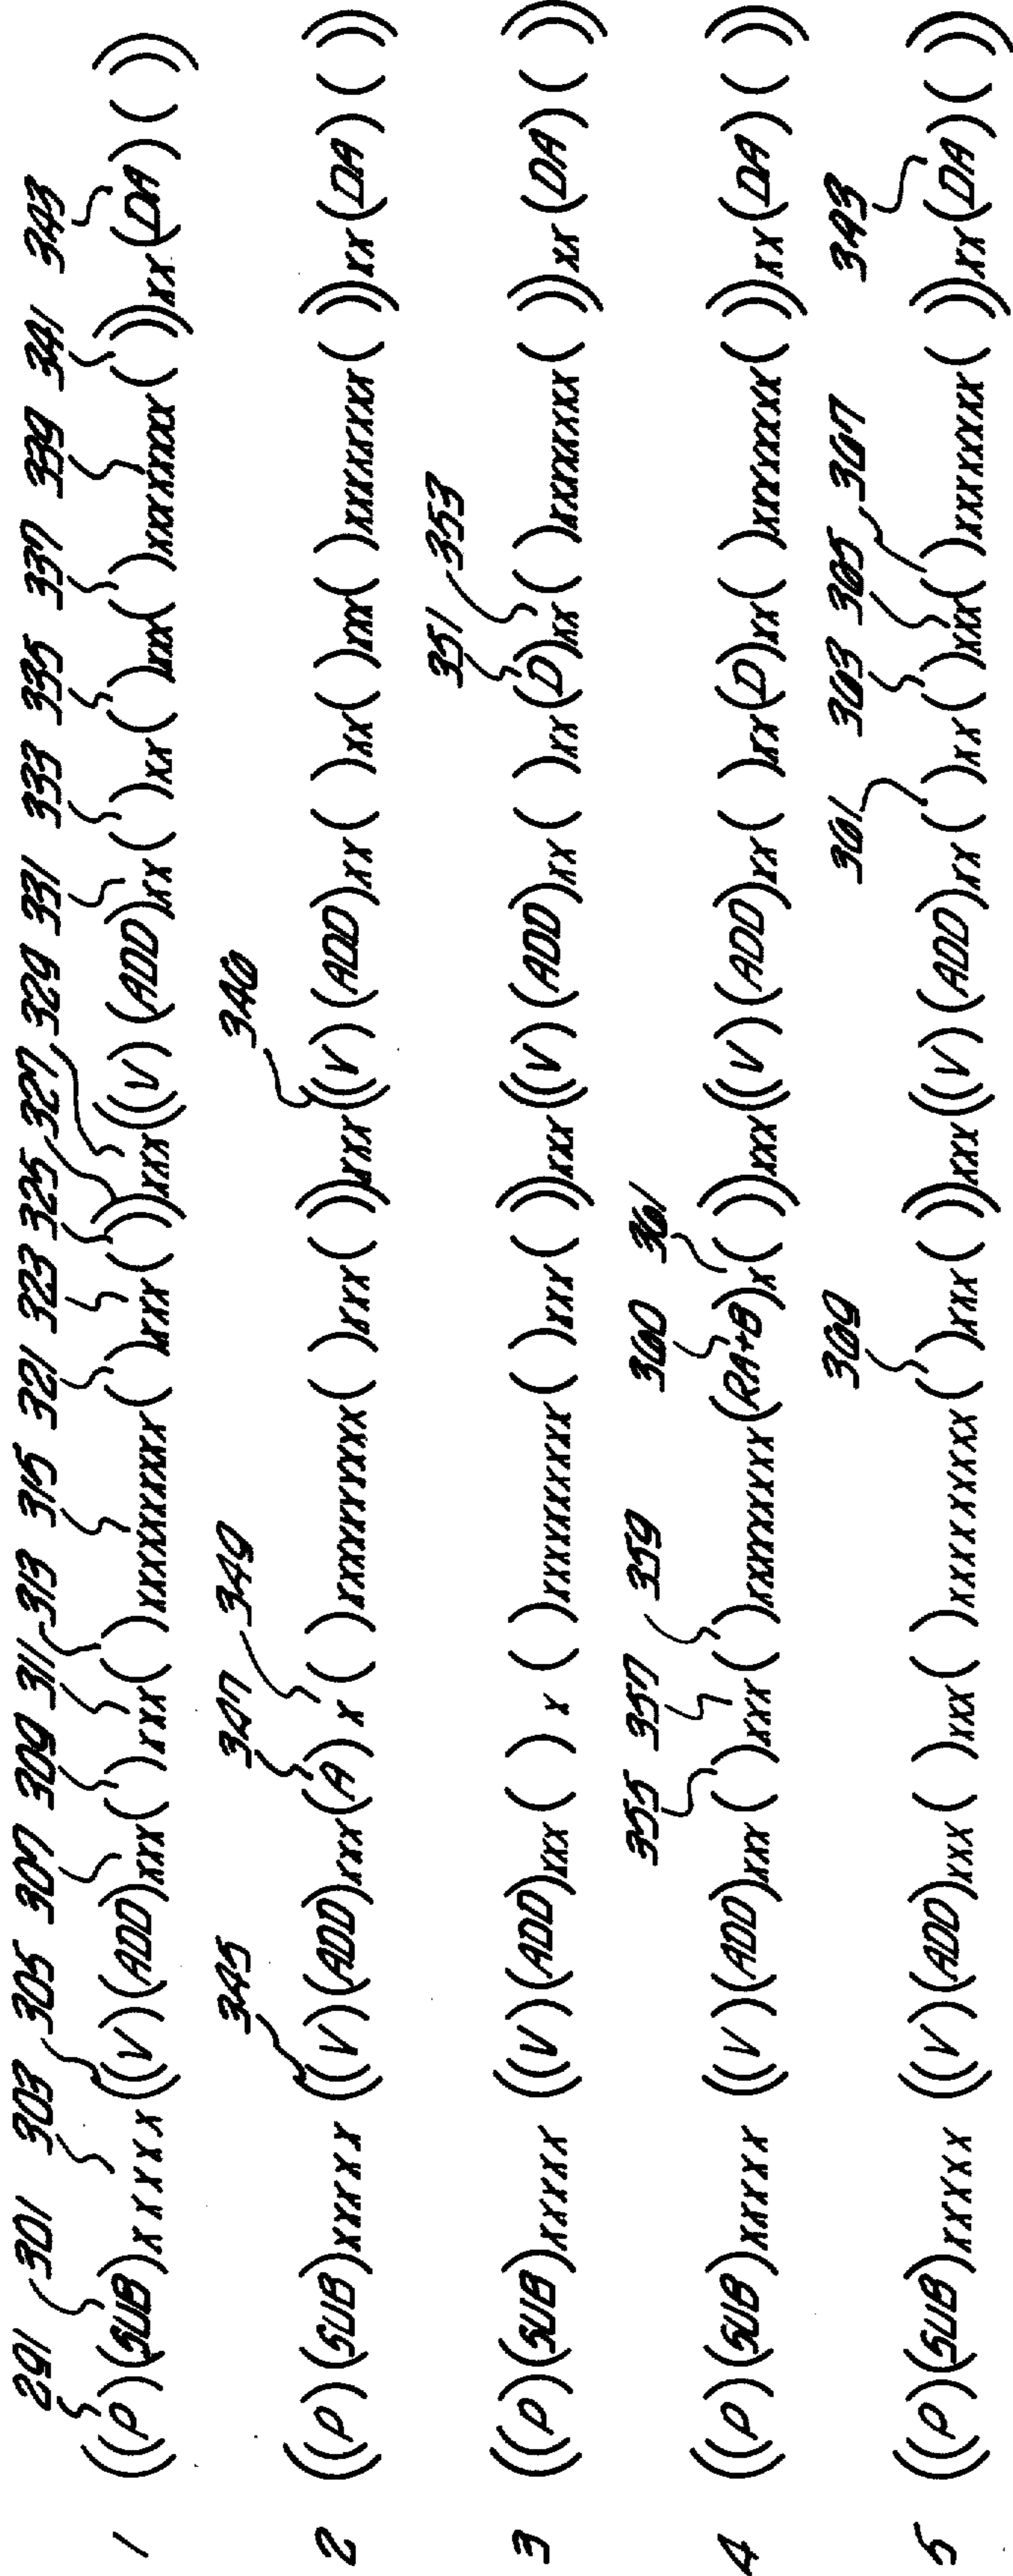 291 301 303 305 307 309 311 313 315 321 323 325 327 329 331 333 335 337 339 341 343
1 (((P)(SUB)xxxxx(((V)(ADD)xxx( )xxx( )xxxxxxxx( )xxx( ))xxx(((V)(ADD)xx( )xx( )xxx( )xxxxxxx( ))xx(DA)( ))
345 347 349 346
2 (((P)(SUB)xxxxx(((V)(ADD)xxx(A)x( )xxxxxxxx( )xxx( ))xxx(((V)(ADD)xx( )xx( )xxx( )xxxxxxx( ))xx(DA)( ))
351 353
3 (((P)(SUB)xxxxx(((V)(ADD)xxx( )x( )xxxxxxxx( )xxx( ))xxx(((V)(ADD)xx( )xx(D)xx( )xxxxxxx( ))xx(DA)( ))
355 357 359 360 361
4 (((P)(SUB)xxxxx(((V)(ADD)xxx( )xxx( )xxxxxxxx(RA+B)x( ))xxx(((V)(ADD)xx( )xx(D)xx( )xxxxxxx( ))xx(DA)( ))
369 361 363 365 367 343
5 (((P)(SUB)xxxxx(((V)(ADD)xxx( )xxx( )xxxxxxxx( )xxx( ))xxx(((V)(ADD)xx( )xx( )xxx( )xxxxxxx( ))xx(DA)( ))